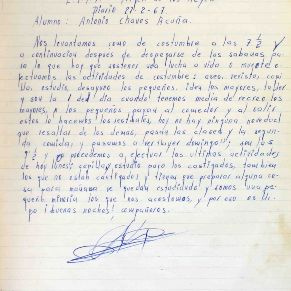 Diario 22-2-67.
Alumno: Antonio Chaves Acuña.
Nos levantamos como de costumbre a las 7 ½ y
a continuación después de despegarse de las sabanas pa
ra lo que hay que sostener una lucha a vida o muerte e
fectuamos las actividades de costumbre: aseo, revista, capi
lla, estudio, desayuno los pequeños. idea los mayores, taller
y son la 1 del día cuando tenemos media de recreo los
mayores, a los pequeños pasan al comedor y al salir
estos lo hacemos los restantes, hoy no hay ninguna novedad
que resaltar de los demas, pasan las clases y la segun
da comida; y pasamos a ver
y procedemos a efectuar las ultimas actividades
de hoy lunes: capilla, estudio para los castigados, tambien
los que no estan castigados y tengan que preparar alguna co
sa para mañana se quedan estudiando y somos una pe
queña minoria los que nos acostamos, y por eso os di
go ¡buenas noches! compañeros.